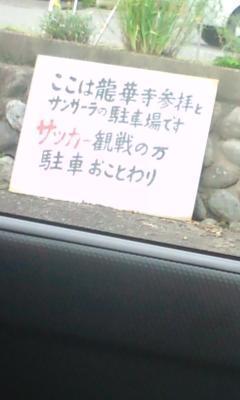 ここは龍華寺参拝と
サンサーラの駐車場です
サッカー観戦の方
駐車おことわり